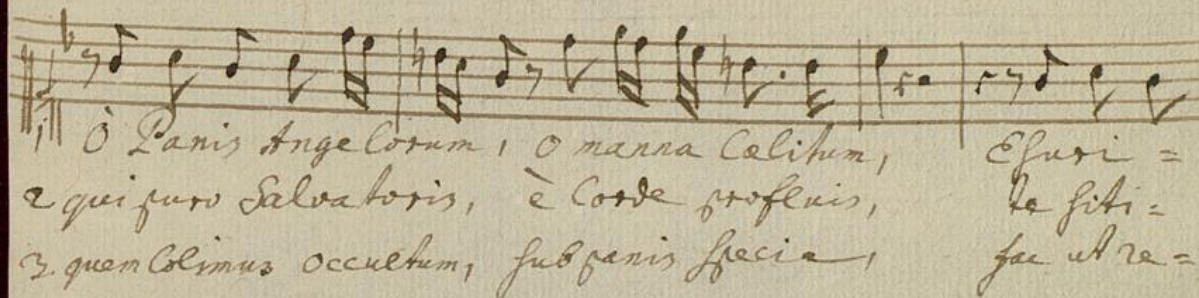 1 Ò Panis Angelorum, O manna Cœlitum, Esuri =
2 qui puro Salvatoris, è Corde profluis, te siti =
3. quem Colimus occultum, sub panis specie, fac ut re =